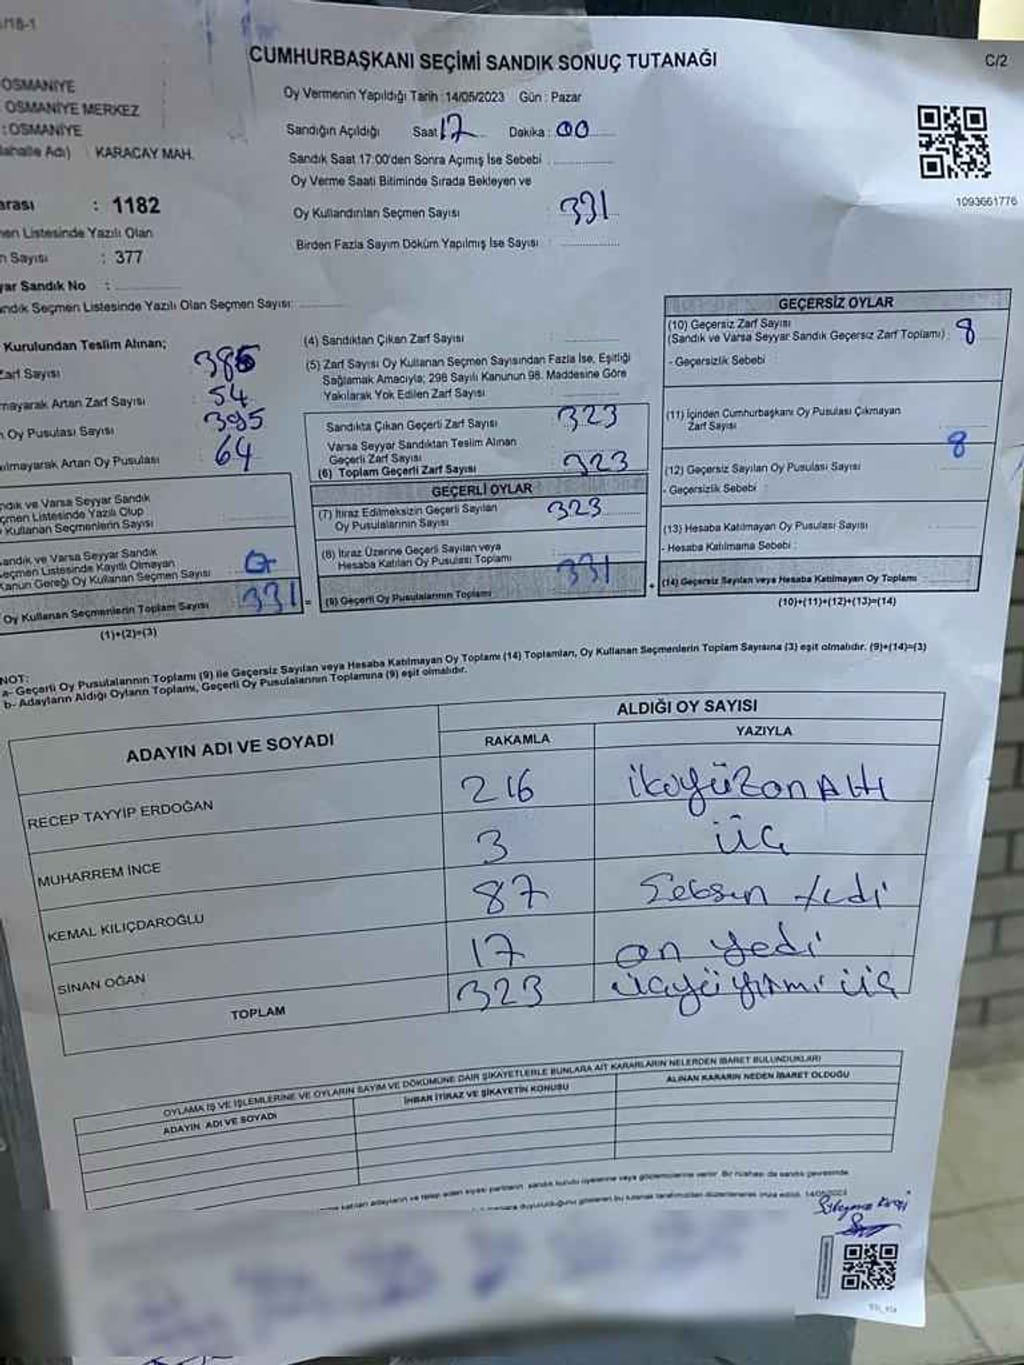 /18-1
CUMHURBAŞKANI SEÇİMİ SANDIK SONUÇ TUTANAĞI
C/2
OSMANİYE
OSMANİYE MERKEZ
: OSMANİYE
ahalle Adı) : KARACAY MAH.
Oy Vermenin Yapıldığı Tarih :14/05/2023 Gün : Pazar
Sandığın Açıldığı Saat 17 Dakika : 00
Sandık Saat 17:00'den Sonra Açımış İse Sebebi :
Oy Verme Saati Bitiminde Sırada Bekleyen ve
Oy Kullandırılan Seçmen Sayısı : 331
Birden Fazla Sayım Döküm Yapılmış İse Sayısı :
1093661776
arası : 1182
en Listesinde Yazılı Olan
n Sayısı : 377
yar Sandık No :
ndık Seçmen Listesinde Yazılı Olan Seçmen Sayısı:
Kurulundan Teslim Alınan;
Zarf Sayısı 385
mayarak Artan Zarf Sayısı : 54
n Oy Pusulası Sayısı 395
ılmayarak Artan Oy Pusulası : 64
ndık ve Varsa Seyyar Sandık
çmen Listesinde Yazılı Olup
Kullanan Seçmenlerin Sayısı :
andık ve Varsa Seyyar Sandık
eçmen Listesinde Kayıtlı Olmayan
Kanun Gereği Oy Kullanan Seçmen Sayısı :
Oy Kullanan Seçmenlerin Toplam Sayısı 331 =
(1)+(2)=(3)
(4) Sandıktan Çıkan Zarf Sayısı :
(5) Zarf Sayısı Oy Kullanan Seçmen Sayısından Fazla İse, Eşitliği
Sağlamak Amacıyla; 298 Sayılı Kanunun 98. Maddesine Göre
Yakılarak Yok Edilen Zarf Sayısı :
Sandıkta Çıkan Geçerli Zarf Sayısı : 323
Varsa Seyyar Sandıktan Teslim Alınan
Geçerli Zarf Sayısı :
(6) Toplam Geçerli Zarf Sayısı : 323
GEÇERLİ OYLAR
(7) İtiraz Edilmeksizin Geçerli Sayılan
Oy Pusulalarının Sayısı : 323
(8) İtiraz Üzerine Geçerli Sayılan veya
Hesaba Katılan Oy Pusulası Toplamı :
(9) Geçerli Oy Pusulalarının Toplamı : 331 +
GEÇERSİZ OYLAR
(10) Geçersiz Zarf Sayısı
(Sandık ve Varsa Seyyar Sandık Geçersiz Zarf Toplamı) : 8
- Geçersizlik Sebebi :
(11) İçinden Cumhurbaşkanı Oy Pusulası Çıkmayan
Zarf Sayısı
8
(12) Geçersiz Sayılan Oy Pusulası Sayısı :
- Geçersizlik Sebebi :
(13) Hesaba Katılmayan Oy Pusulası Sayısı :
- Hesaba Katılmama Sebebi :
(14) Geçersiz Sayılan veya Hesaba Katılmayan Oy Toplamı :
(10)+(11)+(12)+(13)=(14)
NOT:
a- Geçerli Oy Pusulalarının Toplamı (9) ile Geçersiz Sayılan veya Hesaba Katılmayan Oy Toplamı (14) Toplamları, Oy Kullanan Seçmenlerin Toplam Sayısına (3) eşit olmalıdır. (9)+(14)=(3)
b- Adayların Aldığı Oyların Toplamı, Geçerli Oy Pusulalarının Toplamına (9) eşit olmalıdır.
ADAYIN ADI VE SOYADI
ALDIĞI OY SAYISI
RAKAMLA YAZIYLA
RECEP TAYYİP ERDOĞAN 216 ikiyüzonaltı
MUHARREM İNCE 3 üç
KEMAL KILIÇDAROĞLU 87 Seksen yedi
SİNAN OĞAN 17 on yedi
TOPLAM 323 üçyüyirmi üç
OYLAMA İŞ VE İŞLEMLERİNE VE OYLARIN SAYIM VE DÖKÜMÜNE DAİR ŞİKAYETLERLE BUNLARA AİT KARARLARIN NELERDEN İBARET BULUNDUKLARI
ADAYIN ADI VE SOYADI İHBAR İTİRAZ VE ŞİKAYETİN KONUSU ALINAN KARARIN NEDEN İBARET OLDUĞU